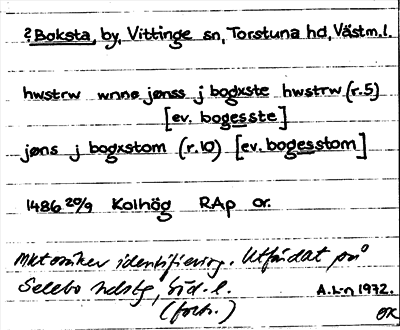 ? Boksta, by, Vittinge sn, Torstuna hd, Västm.l.
hwstrw wnnø jønss j bogxste hwstrw (r.5)
[ev. bogesste]
jøns j bogxstom (r.10) [ev. bogesstom]
1486 20/9 Kolhög RAp or.
Mkt osäker identifiering. Utfärdat på
Selebo hdstg, Söd. l.
(forts.) A.L-n 1972.